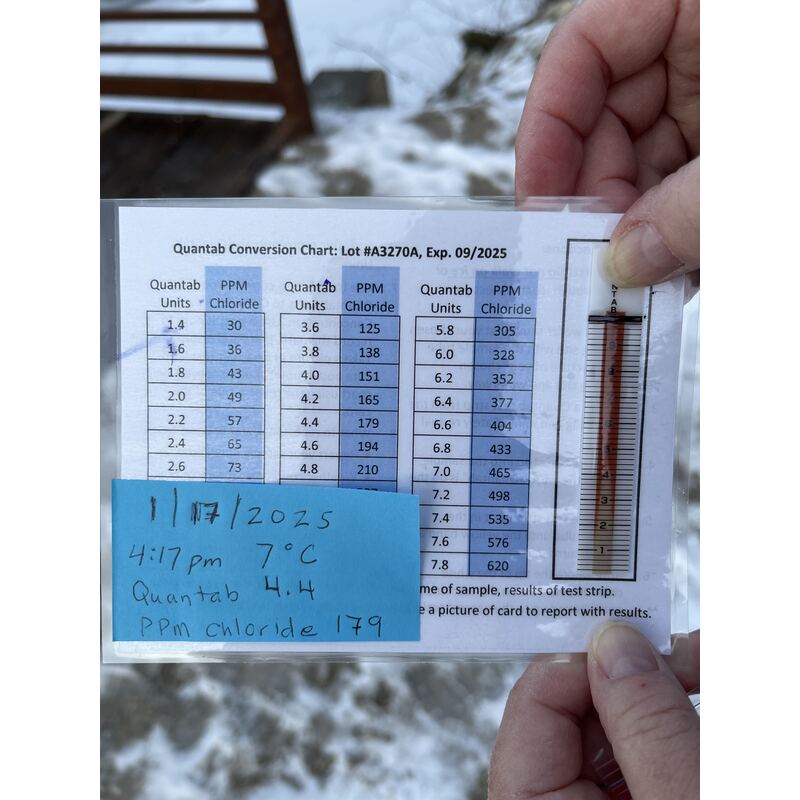 Quantab Conversion Chart: Lot #A3270A, Exp. 09/2025
Quantab Units PPM Chloride Quantab Units PPM Chloride Quantab Units PPM Chloride
1.4 30 3.6 125 5.8 305
1.6 36 3.8 138 6.0 328
1.8 43 4.0 151 6.2 352
2.0 49 4.2 165 6.4 377
2.2 57 4.4 179 6.6 404
2.4 65 4.6 194 6.8 433
2.6 73 4.8 210 7.0 465
7.2 498
7.4 535
7.6 576
7.8 620
me of sample, results of test strip.
e a picture of card to report with results.
1/17/2025
4:17pm 7°C
Quantab 4.4
PPm chloride 179
NTAB
9
8
7
6
5
4
3
2
1